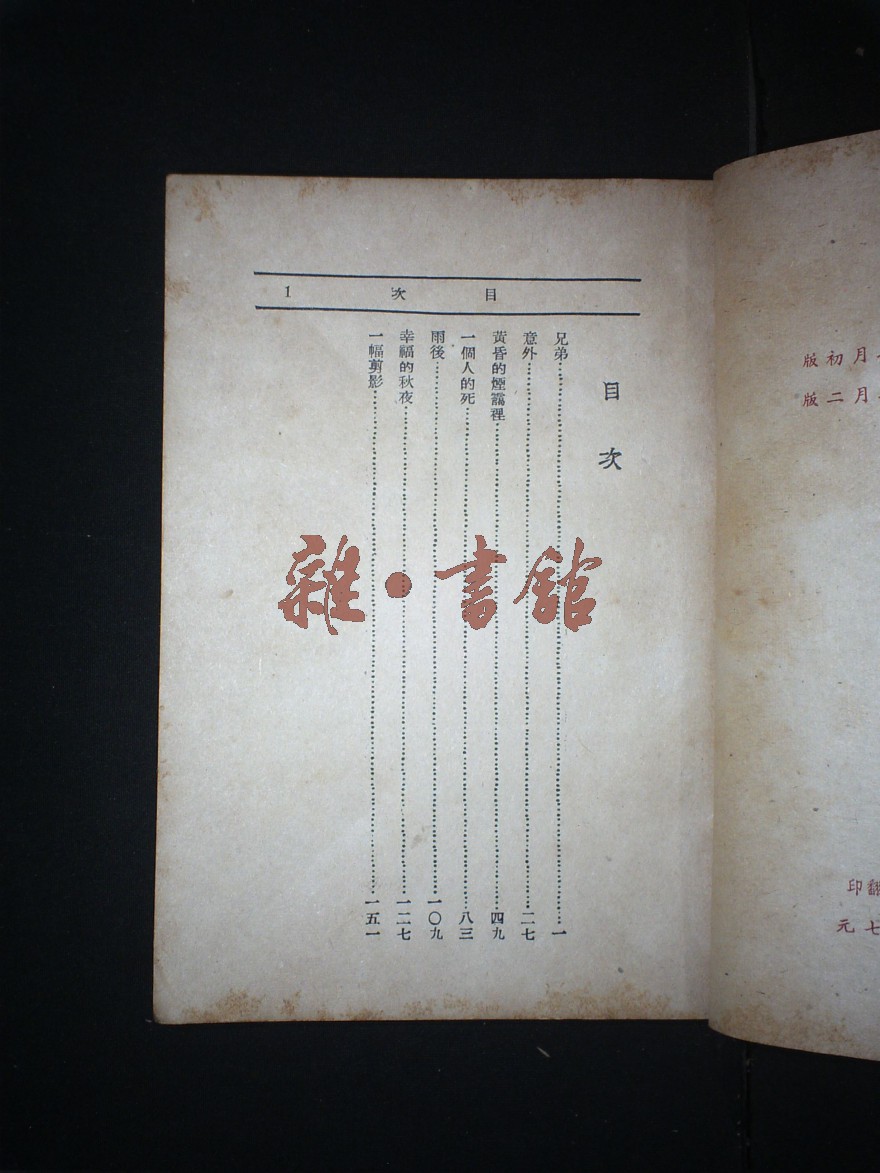 目次 1
目次
兄弟……一
意外……二七
黃昏的煙靄裡……四九
一個人的死……八三
雨後……一〇九
幸福的秋夜……一二七
一幅剪影……一五一
月初版
月二版
翻印
七元
雜·書館